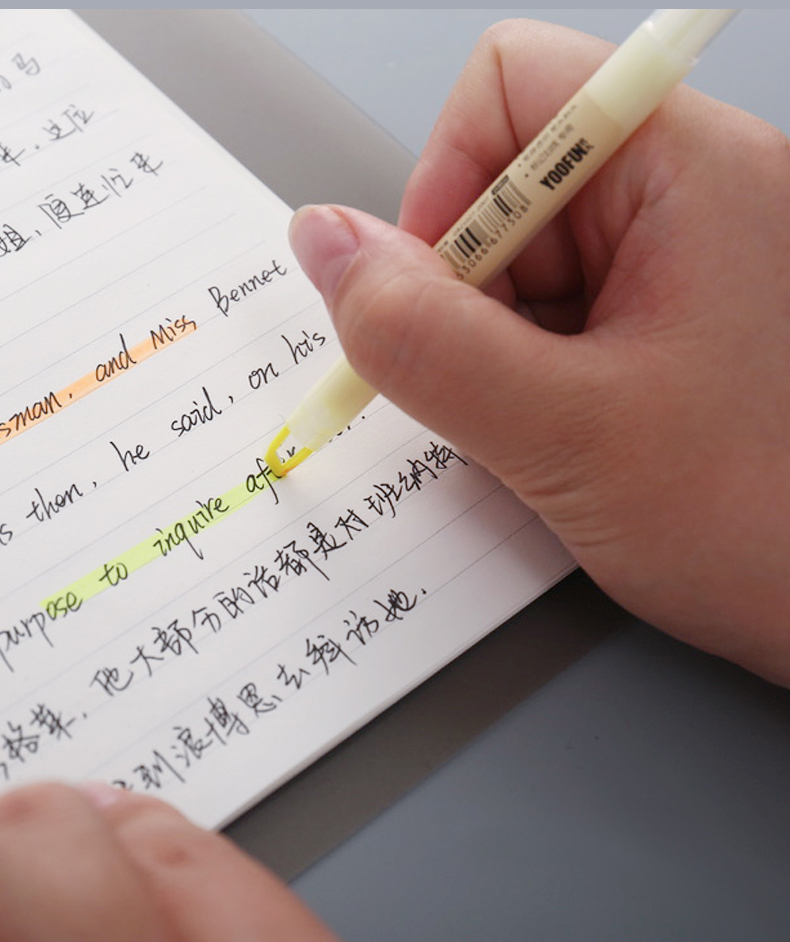 马
来，这位
姐，便连忙来
sman, and Miss Bennet
s then, he said, on his
purpose to inquire after
格莱，他大部分的话都是对班纳特
到浪博恩去拜访她.
YOOFUN